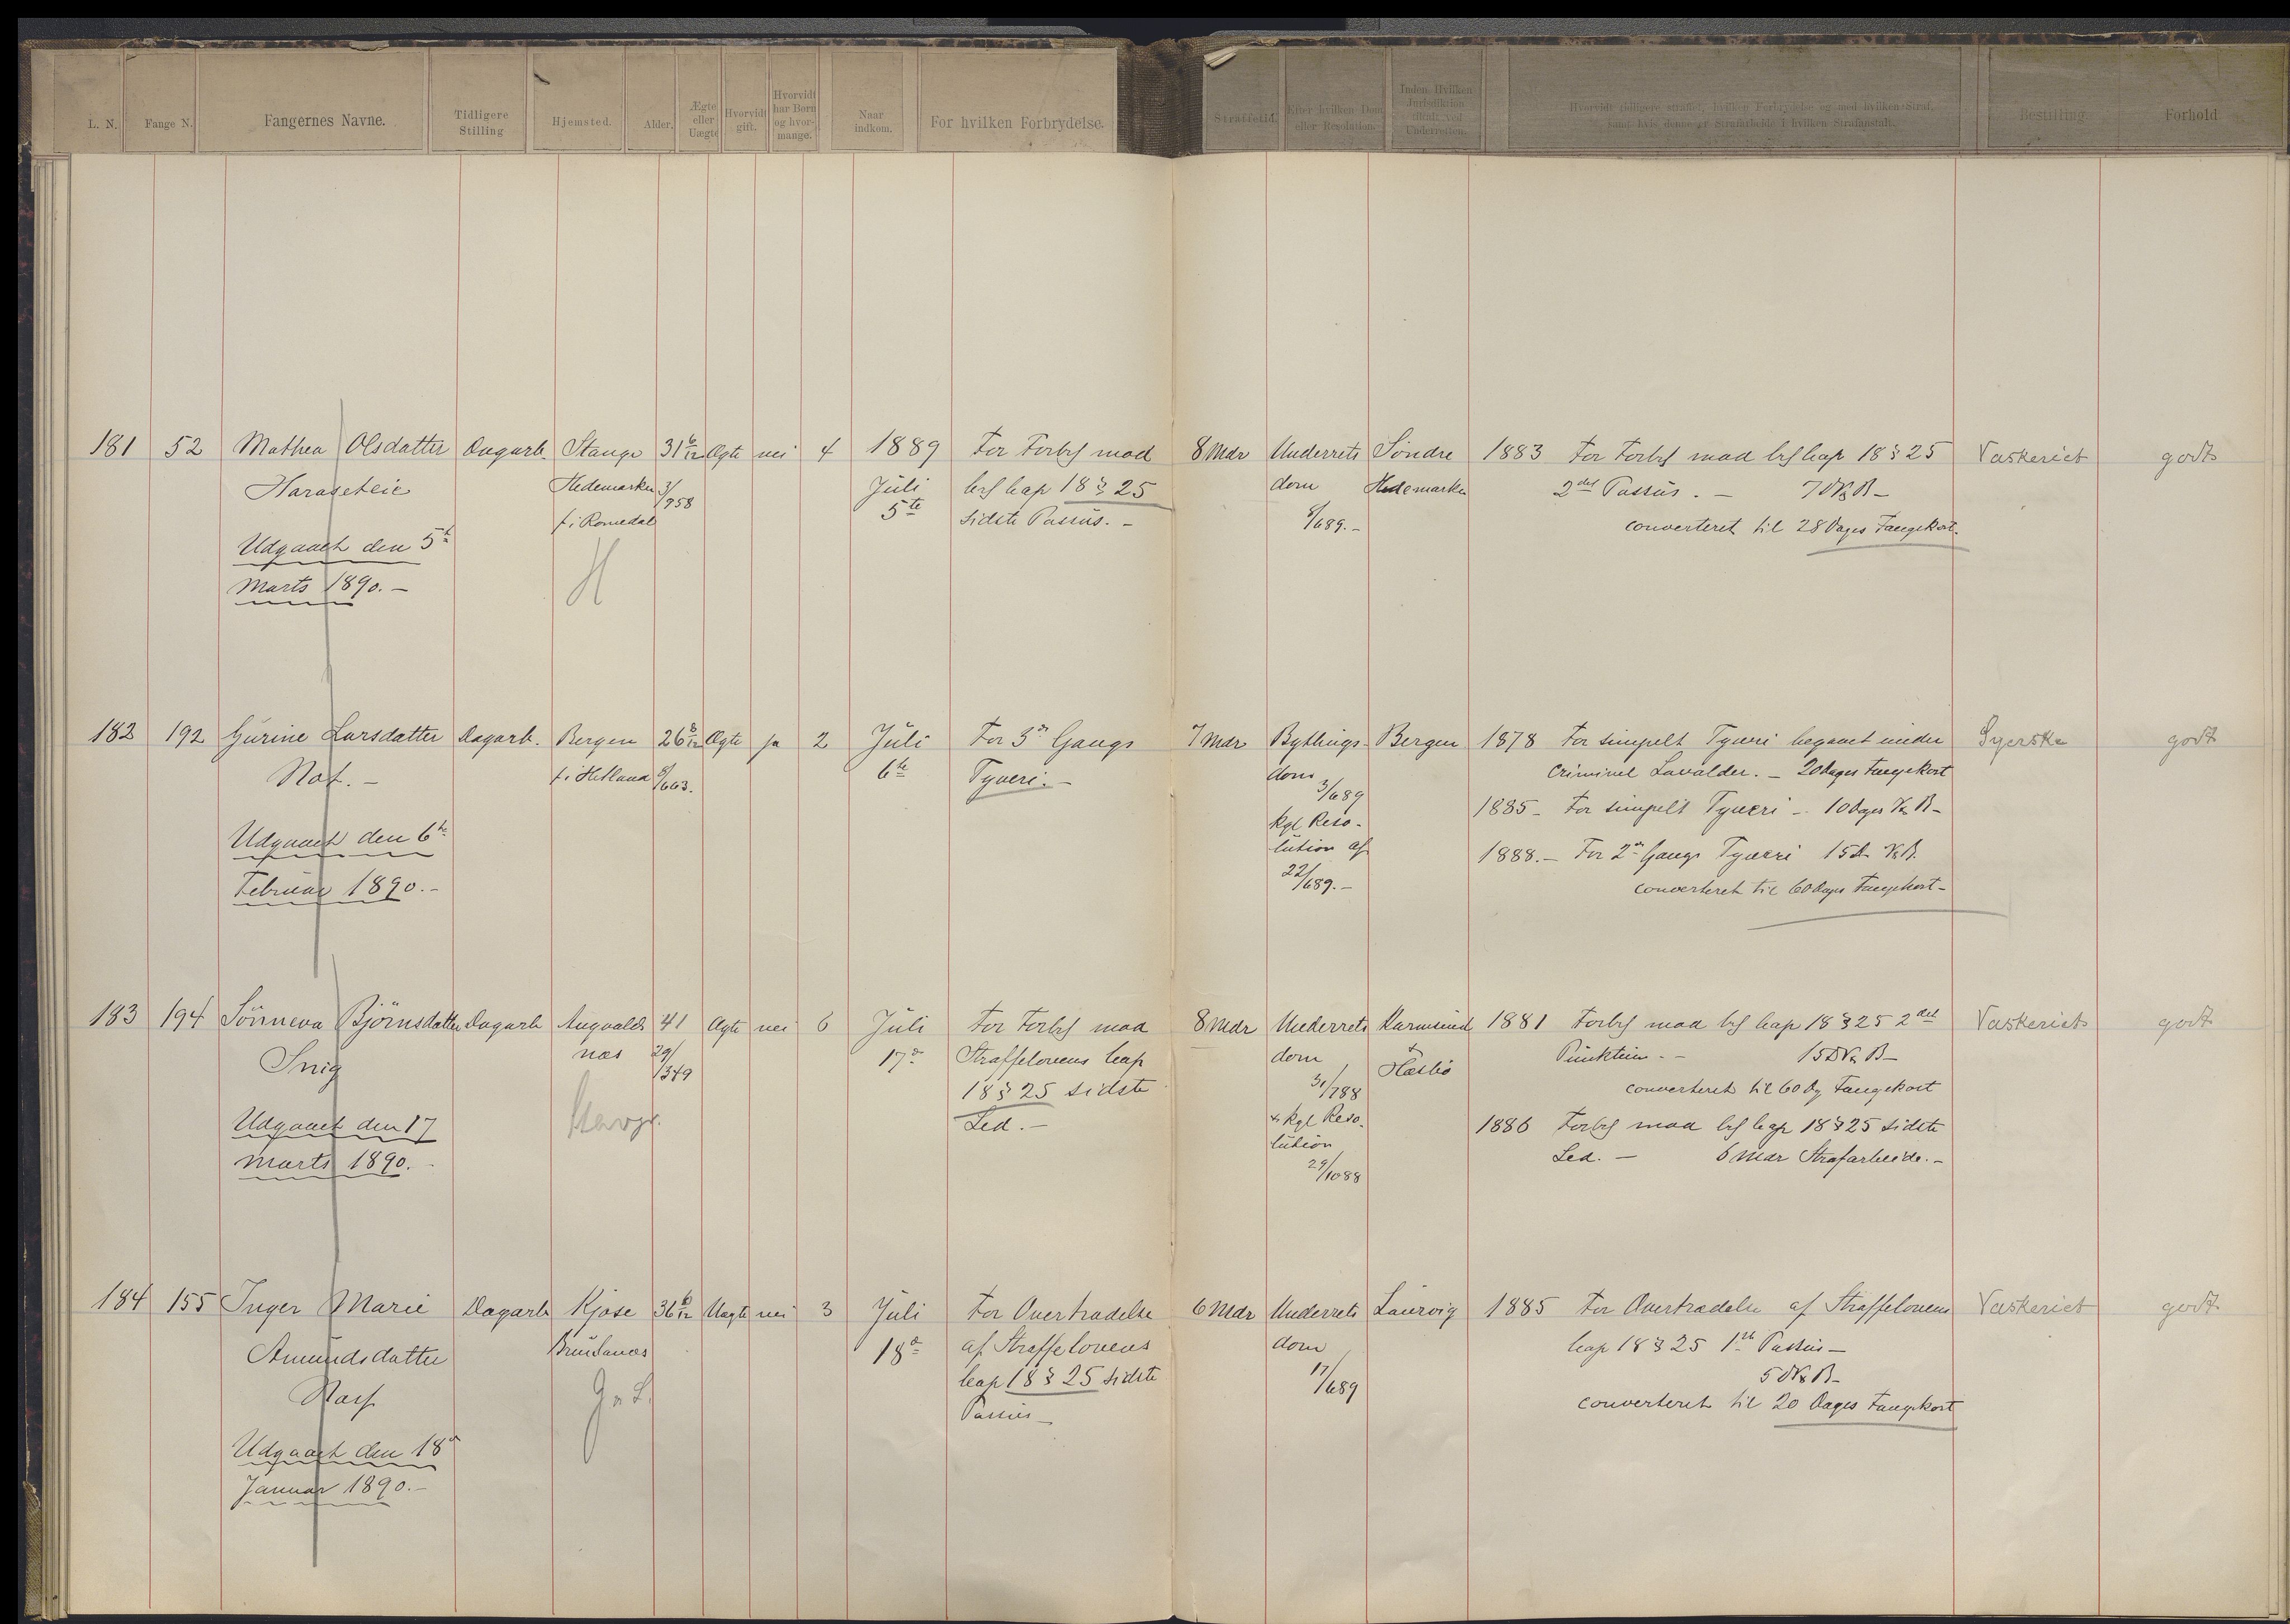 L. N. Fange N. Fangernes Navne. Tidligere Stilling Hjemsted. Alder. Ægte eller Uægte Hvorvidt gift. Hvorvidt har Børn og hvor- mange. Naar indkom. For hvilken Forbrydelse. Straffetid. Efter hvilken Dom eller Resolution. Inden Hvilken Jurisdiktion tiltalt ved Underretten. Hvorvidt tidligere straffet, hvilken Forbrydelse og med hvilken Straf, samt hvis denne er Strafarbeide i hvilken Strafanstalt. Bestilling Forhold
181 52 Mathea Olsdatter Dagarb. Stange 31 6/12 Ægte nei 4 1889 For Forbr mod 8 Mdr Underrets Søndre 1883 For Forbr mod lrs kap 18 § 25 Vaskeriet godt
Haraseteie Hedemarken 3/958 Juli lrs kap 18 § 25 dom Hedemarken 2det Passus. — 7 D V&B —
f. i Romedal 5te sidste Passus. — 8/689. — converteret til 28 Dages Fangekost.
Udgaaet den 5te
Marts 1890. — H
182 192 Gurine Larsdatter Dagarb. Bergen 26 8/12 Ægte ja 2 Juli For 3die Gangs 7 Mdr Bythings- Bergen 1878 For simpelt Tyveri begaaet under Syerske godt
Næs. — f. i Hetland 8/663. 6te Tyveri. — dom 3/689 criminel Lavalder. — 20 Dages Fangekost
kgl Reso- 1885 — For simpelt Tyveri — 10 Dages V&B —
Udgaaet den 6te lution af 1888. — For 2den Gangs Tyveri 15 D V&B.
Februar 1890. — 22/689. — converteret til 60 Dages Fangekost —
183 194 Sønneva Bjørnsdatter Dagarb Augvalds 41 Ægte nei 6 Juli For Forbr mod 8 Mdr Underrets Karmsund 1881 Forbr mod lrs kap 18 § 25 2det Vaskeriet godt
Snig næs 29/349 17de Straffelovens kap dom & Hesbø Punktum. — 15 D V&B —
18 § 25 sidste 31/788 converteret til 60 Dg Fangekost
Udgaaet den 17 Stavgr. Led. — & kgl Reso- 1886 Forbr mod lrs kap 18 § 25 sidste
Marts 1890. lution Led. — 6 Mdr Strafarbeide. —
29/1088
184 155 Inger Marie Dagarb Kjose 36 6/12 Uægte nei 3 Juli For Overtrædelse 6 Mdr Underrets Laurvig 1885 For Overtrædelse af Straffelovens Vaskeriet godt
Amundsdatter Brunlanæs 18de af Straffelovens dom kap 18 § 25 1ste Passus —
kap 18 § 25 sidste 17/689 5 D V&B —
J. & L. Passus — converteret til 20 Dages Fangekost
Udgaaet den 18de
Januar 1890. —